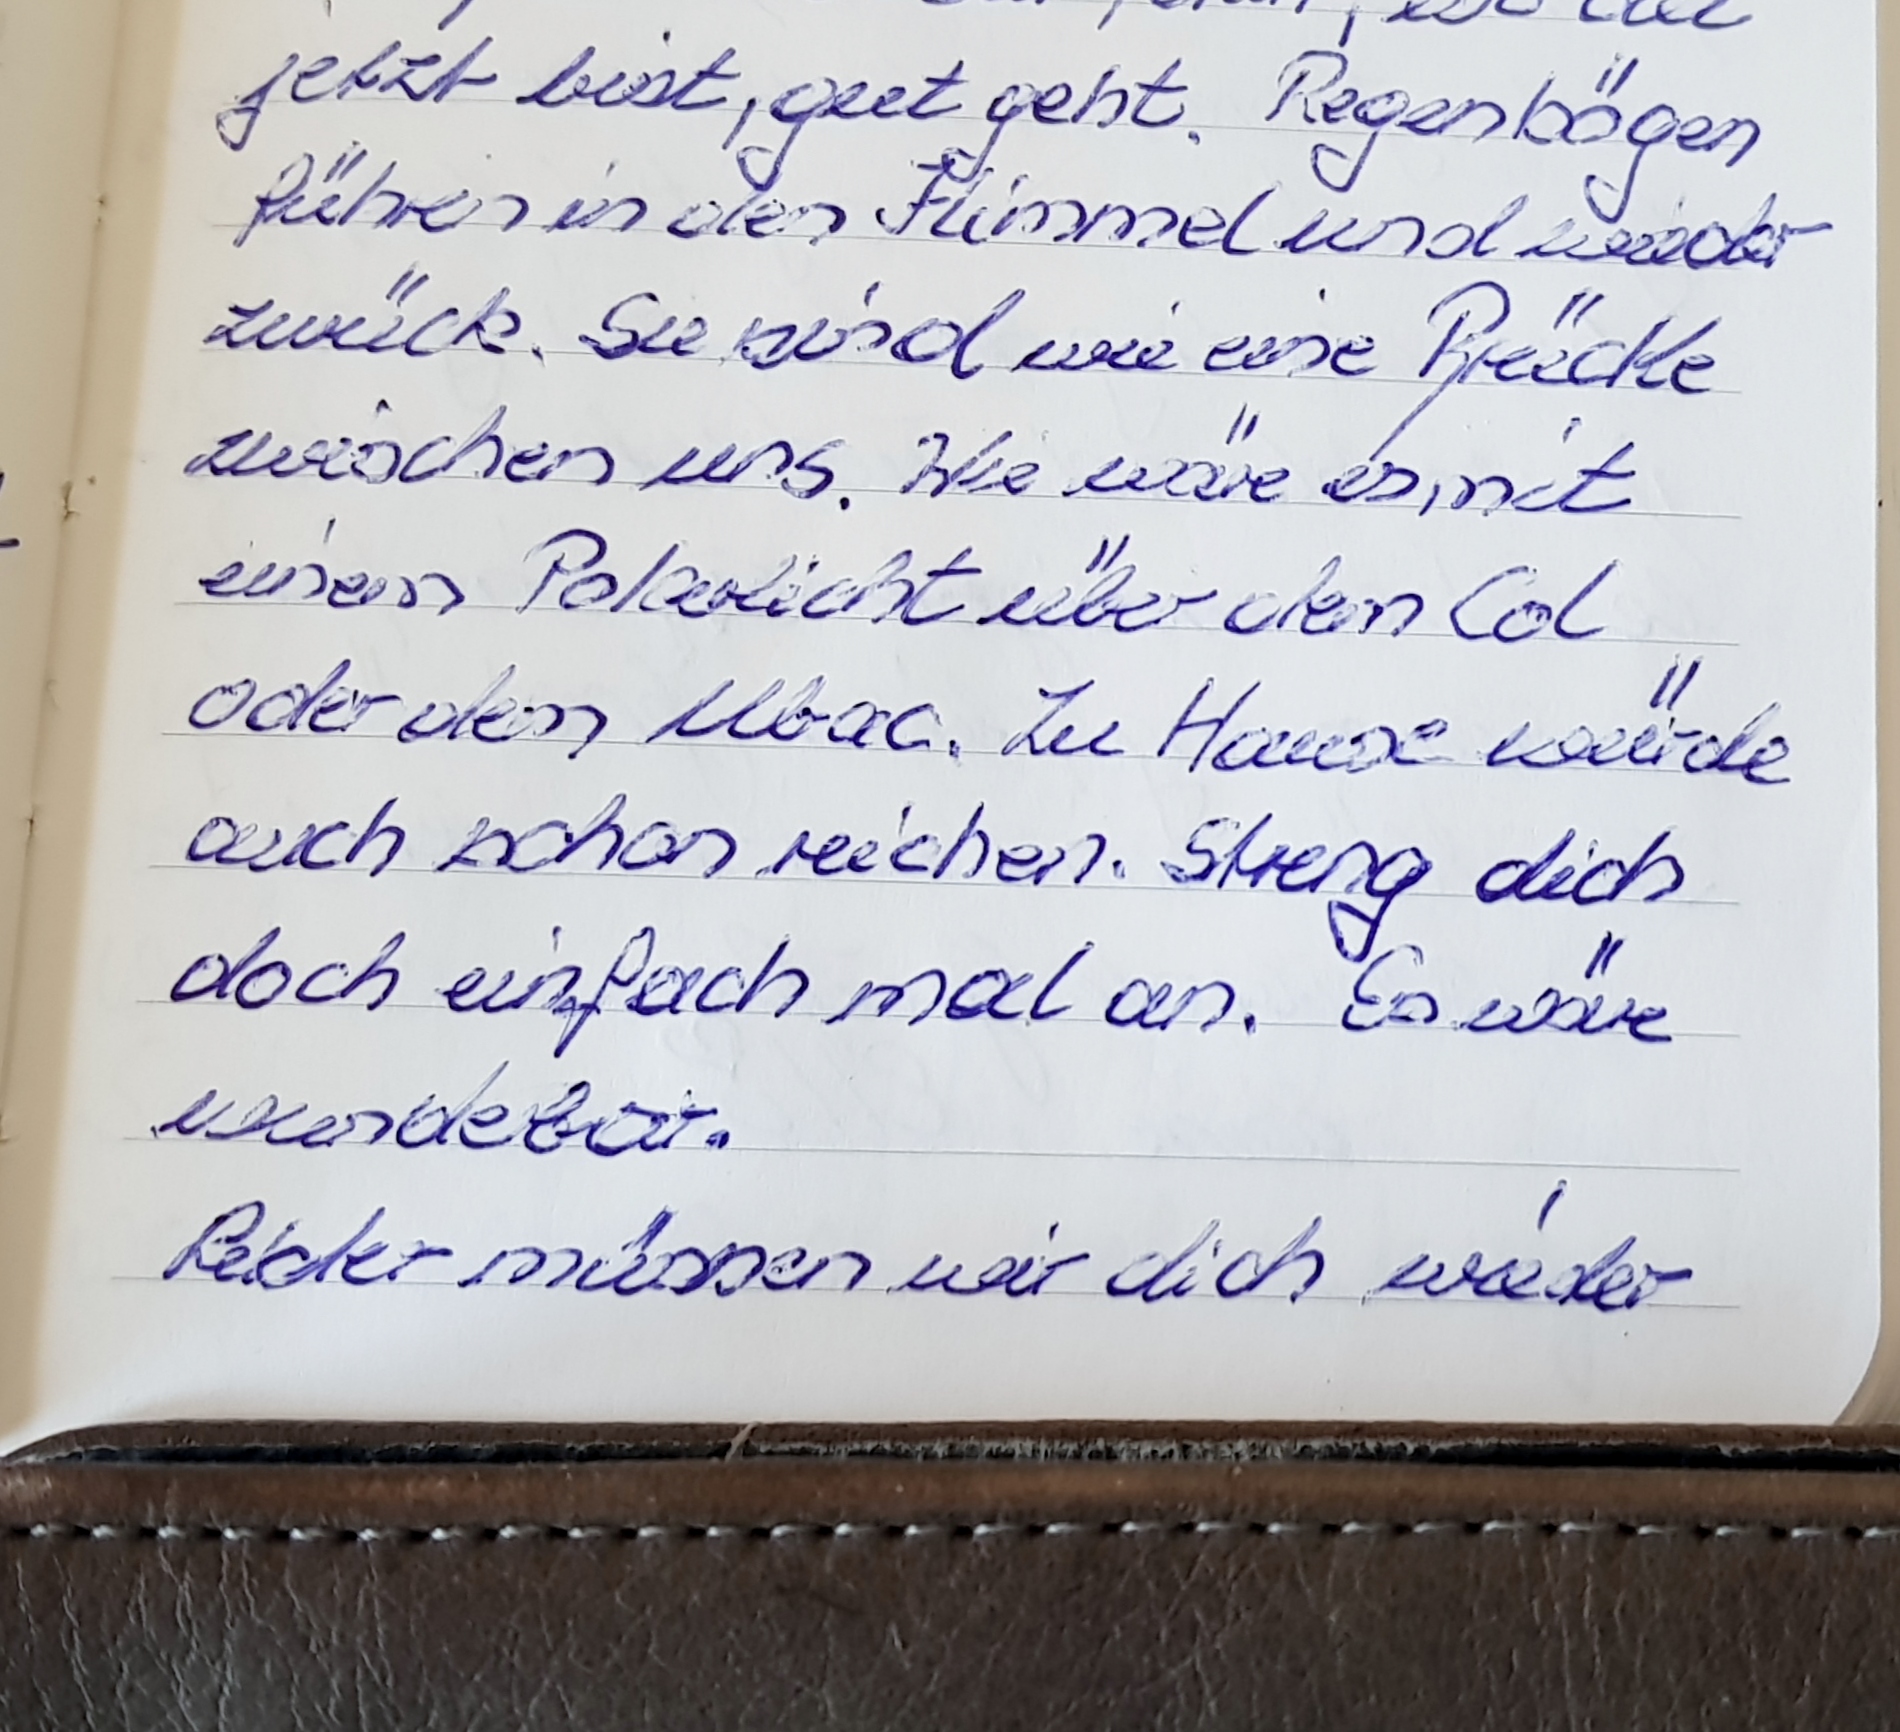 wo du
jetzt bist, gut geht. Regenbögen
führen in den Himmel und wieder
zurück. Sie sind wie eine Brücke
zwischen uns. Wie wäre es, mit
einem Polarlicht über dem Col
oder dem Ubac. Zu Hause würde
auch schon reichen. Streng dich
doch einfach mal an. Es wäre
wunderbar.
Leider müssen wir dich wieder